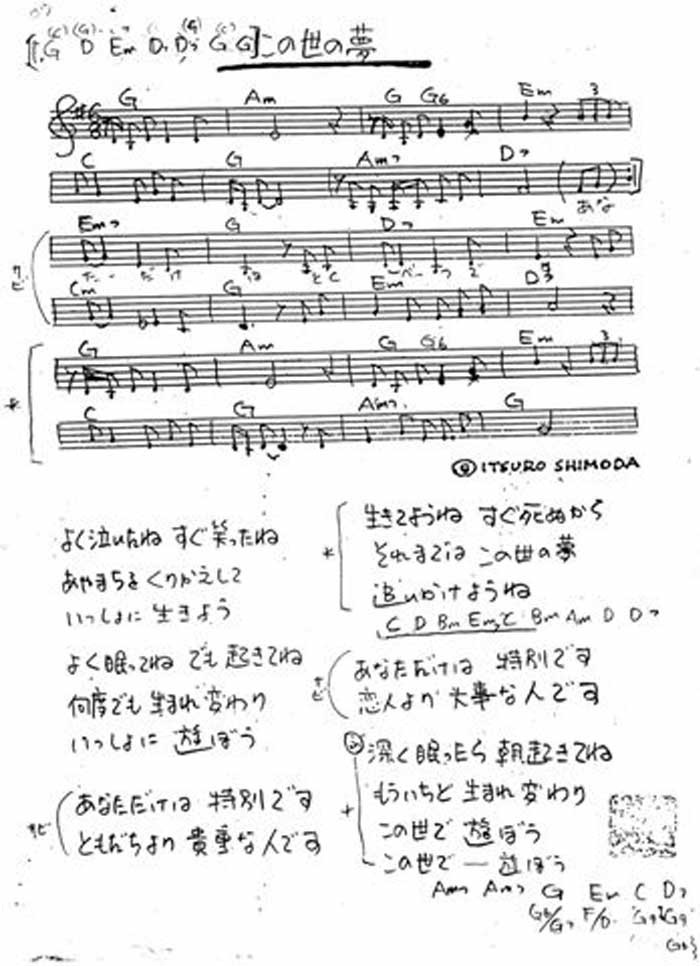 G D Em D7 G G この世の夢
G Am G G6 Em 3
C G Am7 D7
あな
Em7 G D7 Em
サビ
Cm G Em D7
G Am G G6 Em 3
* C G Am7 G
ITSURO SHIMODA
よく泣いたね すぐ笑ったね
あやまちを くりかえして
いっしょに 生きよう
よく眠ってね でも 起きてね
何度でも 生まれ変わり
いっしょに 遊ぼう
サビ あなただけは 特別です
ともだちより 貴重な人です
* 生きてようね すぐ死ぬから
それまでは この世の夢
追いかけようね
C D Bm Em7 C Bm Am D D7
サビ あなただけは 特別です
恋人より 大事な人です
深く眠ったら 朝起きてね
もういちど 生まれ変わり
この世で 遊ぼう
この世で ― 遊ぼう
Am7 Am7 G Em C D7
G6/G7 F/D G7